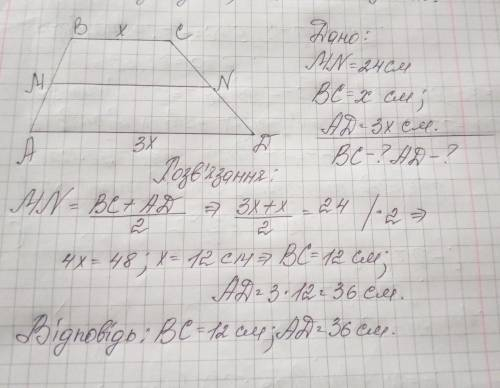 B x C
M N
A 3x D
Дано:
MN=24см
BC=x см;
AD=3x см.
BC-? AD-?
Розв'язання:
MN = (BC+AD)/2 ⇒ (3x+x)/2 = 24 /·2 ⇒
4x=48; x=12 см ⇒ BC=12 см;
AD=3·12=36 см.
Відповідь: BC=12 см; AD=36 см.